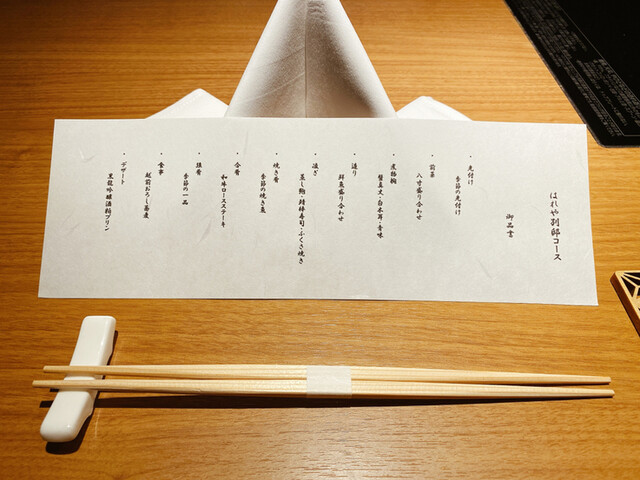 はれや別邸コース
御品書
・先付け
季節の先付け
・前菜
八寸盛り合わせ
・煮物椀
蟹真丈・白木耳・香味
・造り
鮮魚盛り合わせ
・凌ぎ
蒸し鮑・鯖棒寿司・ふくさ焼き
・焼き肴
季節の焼き魚
・合肴
和牛ロースステーキ
・強肴
季節の一品
・食事
越前おろし蕎麦
・デザート
黒龍吟醸酒粕プリン